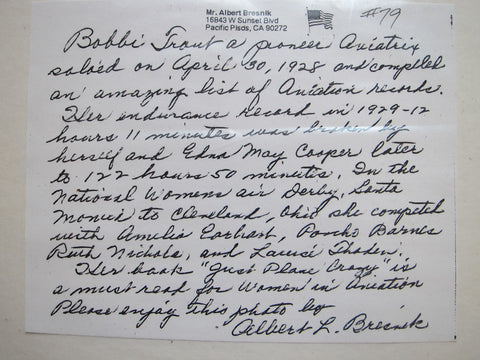 Mr. Albert Bresnik
16843 W Sunset Blvd
Pacific Plsds, CA 90272
#79
Bobbi Trout a pioneer Aviatrix
soloed on April 30, 1928 and compiled
an amazing list of Aviation records.
Her endurance record in 1929-12
hours 11 minutes was broken by
herself and Edna May Cooper later
to 122 hours 50 minutes. In the
National Womens air Derby, Santa
Monica to Cleveland, Ohio she competed
with Amelia Earhart, Poncho Barnes
Ruth Nichols, and Louise Thaden.
Her book "Just Plane Crazy" is
a must read for Women in Aviation
Please enjoy this photo by
Albert L. Bresnik